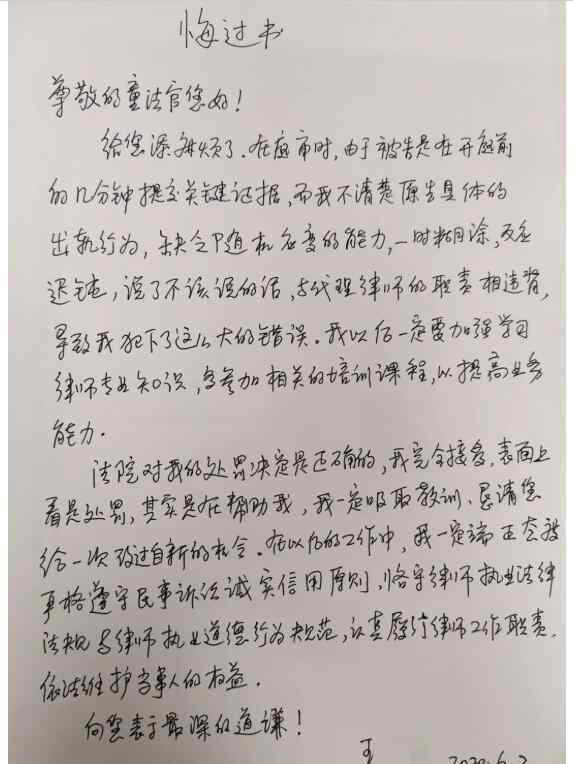 悔过书
尊敬的童法官您好！
给您添麻烦了。在庭审时，由于被告是在开庭前
的几分钟提交关键证据，而我不清楚原告具体的
出轨行为，缺乏随机应变的能力，一时糊涂，反应
迟钝，说了不该说的话，与代理律师的职责相违背，
导致我犯下了这么大的错误。我以后一定要加强学习
律师专业知识，多参加相关的培训课程，以提高业务
能力。
法院对我的处罚决定是正确的，我完全接受，表面上
看是处罚，其实是在帮助我，我一定吸取教训、恳请您
给一次改过自新的机会。在以后的工作中，我一定端正态度
严格遵守民事诉讼诚实信用原则，恪守律师执业法律
法规与律师执业道德行为规范，认真履行律师工作职责，
依法维护当事人的权益。
向您表示最深的道歉！
王